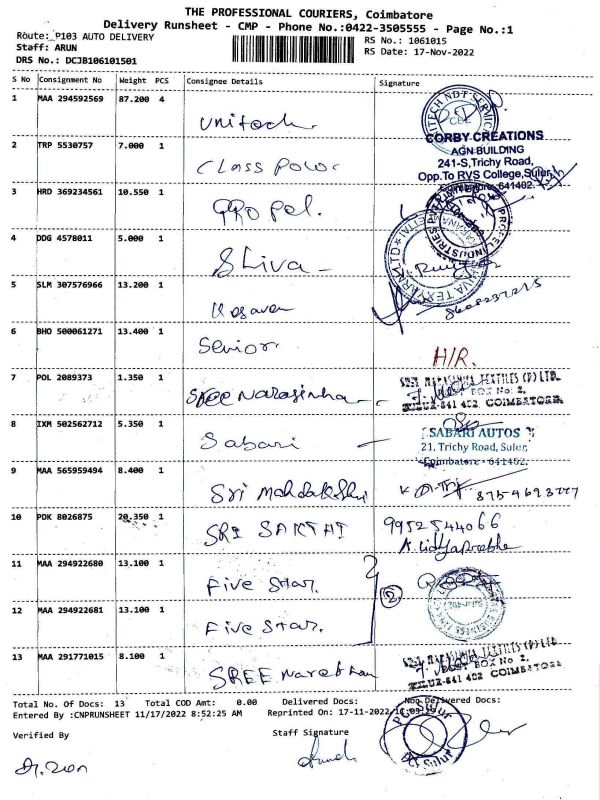 THE PROFESSIONAL COURIERS, Coimbatore
Delivery Runsheet - CMP - Phone No.:0422-3505555 - Page No.:1
Route: P103 AUTO DELIVERY
Staff: ARUN
DRS No.: DCJB106101501
RS No.: 1061015
RS Date: 17-Nov-2022
S No Consignment No Weight PCS Consignee Details Signature
1 MAA 294592569 87.200 4 Unitech
CORBY CREATIONS
AGN BUILDING
241-S,Trichy Road,
Opp.To RVS College,Sulur,
Coimbatore - 641402.
2 TRP 5530757 7.000 1 Class Polo
3 HRD 369234561 10.550 1 Propel.
4 DDG 4578011 5.000 1 Shiva
5 SLM 307576966 13.200 1 Kesavan
6 BHO 500061271 13.400 1 Senior H/R.
7 POL 2089373 1.350 1 Sree Narasimha
TEXTILES (P) LTD.
POST BOX No: 2,
SULUR-641 402, COIMBATORE
8 IXM 502562712 5.350 1 Sabari
SABARI AUTOS
21, Trichy Road, Sulur,
Coimbatore - 641402.
9 MAA 565959494 8.400 1 Sri
10 PDK 8026875 20.350 1 SRI SAKTHI 9952544066
A. Vidhyaprabha
11 MAA 294922680 13.100 1 Five Star.
2
12 MAA 294922681 13.100 1 Five Star.
13 MAA 291771015 8.100 1 SREE
TEXTILES (P) LTD
POST BOX No 2,
SULUR-641 402 COIMBATORE
Total No. Of Docs: 13 Total COD Amt: 0.00 Delivered Docs: Non Delivered Docs:
Entered By :CNPRUNSHEET 11/17/2022 8:52:25 AM Reprinted On : 17-11-2022
Verified By Staff Signature